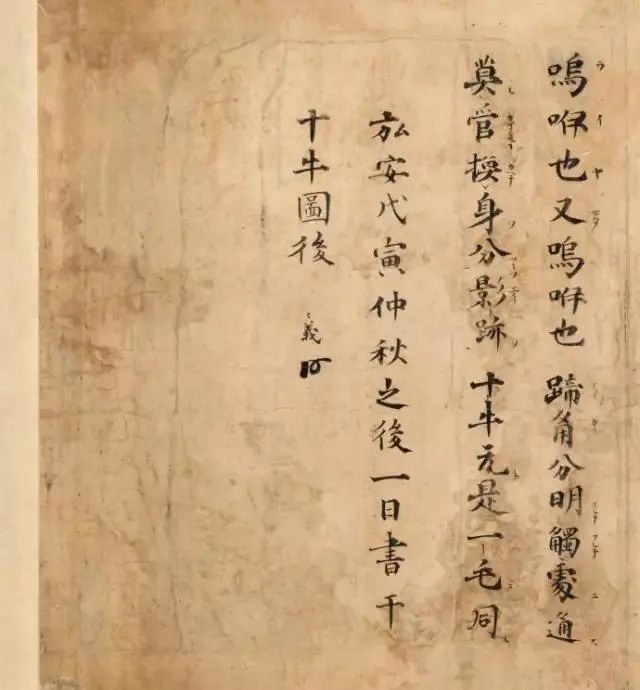 嗚咿也又嗚咿也 蹄角分明觸處通
莫管換身分影跡 十牛元是一毛同
弘安戊寅仲秋之後一日書于
十牛圖後
義